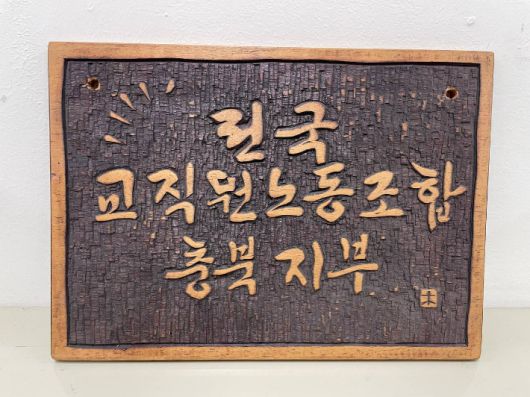 전국
교직원노동조합
충북 지부